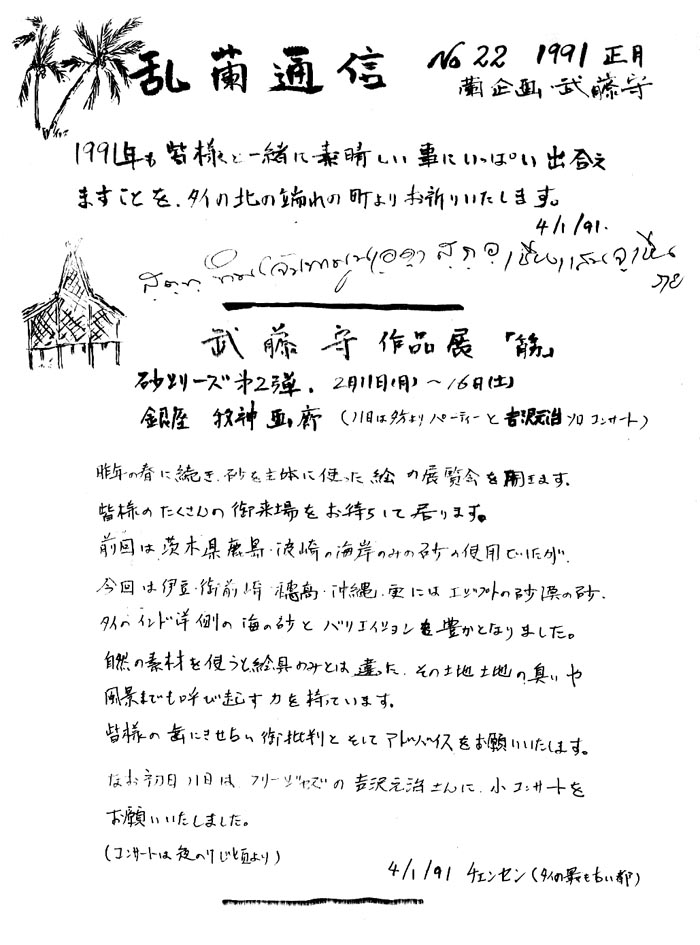 乱蘭通信
No 22 1991 正月
蘭企画・武藤守
1991年も皆様と一緒に素晴しい事にいっぱい出合え
ますことを、タイの北の端れの町よりお祈りいたします。
4/1/91.
武藤守作品展「筋」
砂シリーズ第2弾. 2月11日(月)〜16日(土)
銀座 牧神画廊 (11日は夕方よりパーティーと吉沢元治ソロコンサート)
昨年の春に続き、砂を主体に使った絵の展覧会を開きます。
皆様のたくさんの御来場をお待ちして居ります。
前回は茨木県鹿島・波崎の海岸のみの砂の使用でしたが、
今回は伊豆・御前崎 穂高・沖縄、更にはエジプトの砂漠の砂、
タイのインド洋側の海の砂とバリエイションも豊かとなりました。
自然の素材を使うと絵具のみとは違った、その土地土地の臭いや
風景までも呼び起す力を持っています。
皆様の 御批判とそしてアドバイスをお願いいたします。
なお初日11日は、フリージャズの吉沢元治さんに、小コンサートを
お願いいたしました。
(コンサートは夜の7じ頃より)
4/1/91 チェンセン (タイの最も古い都)